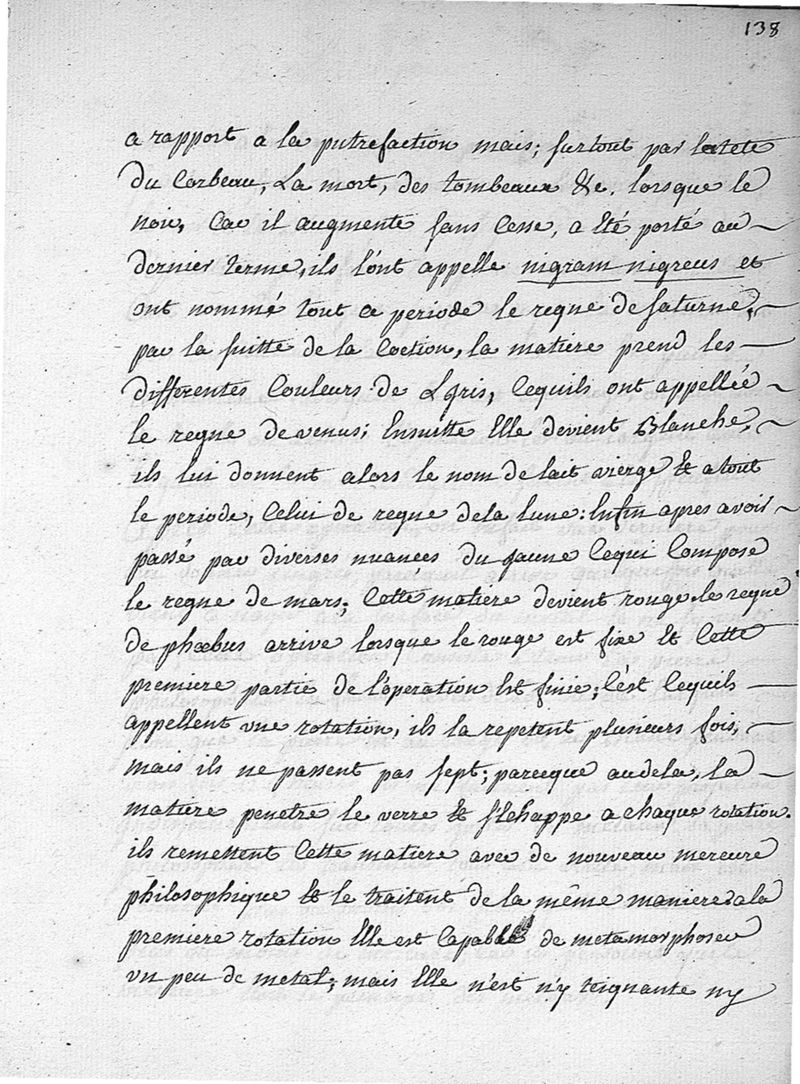 138
a rapport a la putrefaction mais; surtout par la tete
du Corbeau, La mort, des tombeaux &c. lorsque le
noir, Car il augmente sans Cesse, a Eté porté au
dernier terme, ils l'ont appelle nigram nigreus et
ont nommé tout ce periode le regne de saturne,
par la suitte de la Coction, la matiere prend les
differentes Couleurs de L'jris, Cequils ont appellée
le regne de venus; Ensuitte Elle devient Blanche,
ils lui donnent alors le nom de lait vierge & a tout
le periode, Celui de regne dela lune: Enfin apres avoir
passé par diverses nuances du jaune Cequi Compose
le regne de mars; Cette matiere devient rouge. le regne
de phœbus arrive lorsque le rouge est fixe & Cette
premiere partie de l'operation Est finie; C'est Cequils
appellent vne rotation, ils la repetent plusieurs fois,
mais ils ne passent pas sept; parceque audela, la
matiere penetre le verre & s'Echappe a chaque rotation.
ils remettent Cette matiere avec de nouveau mercure
philosophique & le traitent de la même maniere a la
premiere rotation Elle est Capable de metamorphoser
vn peu de metal; mais Elle n'est n'y teignante ny